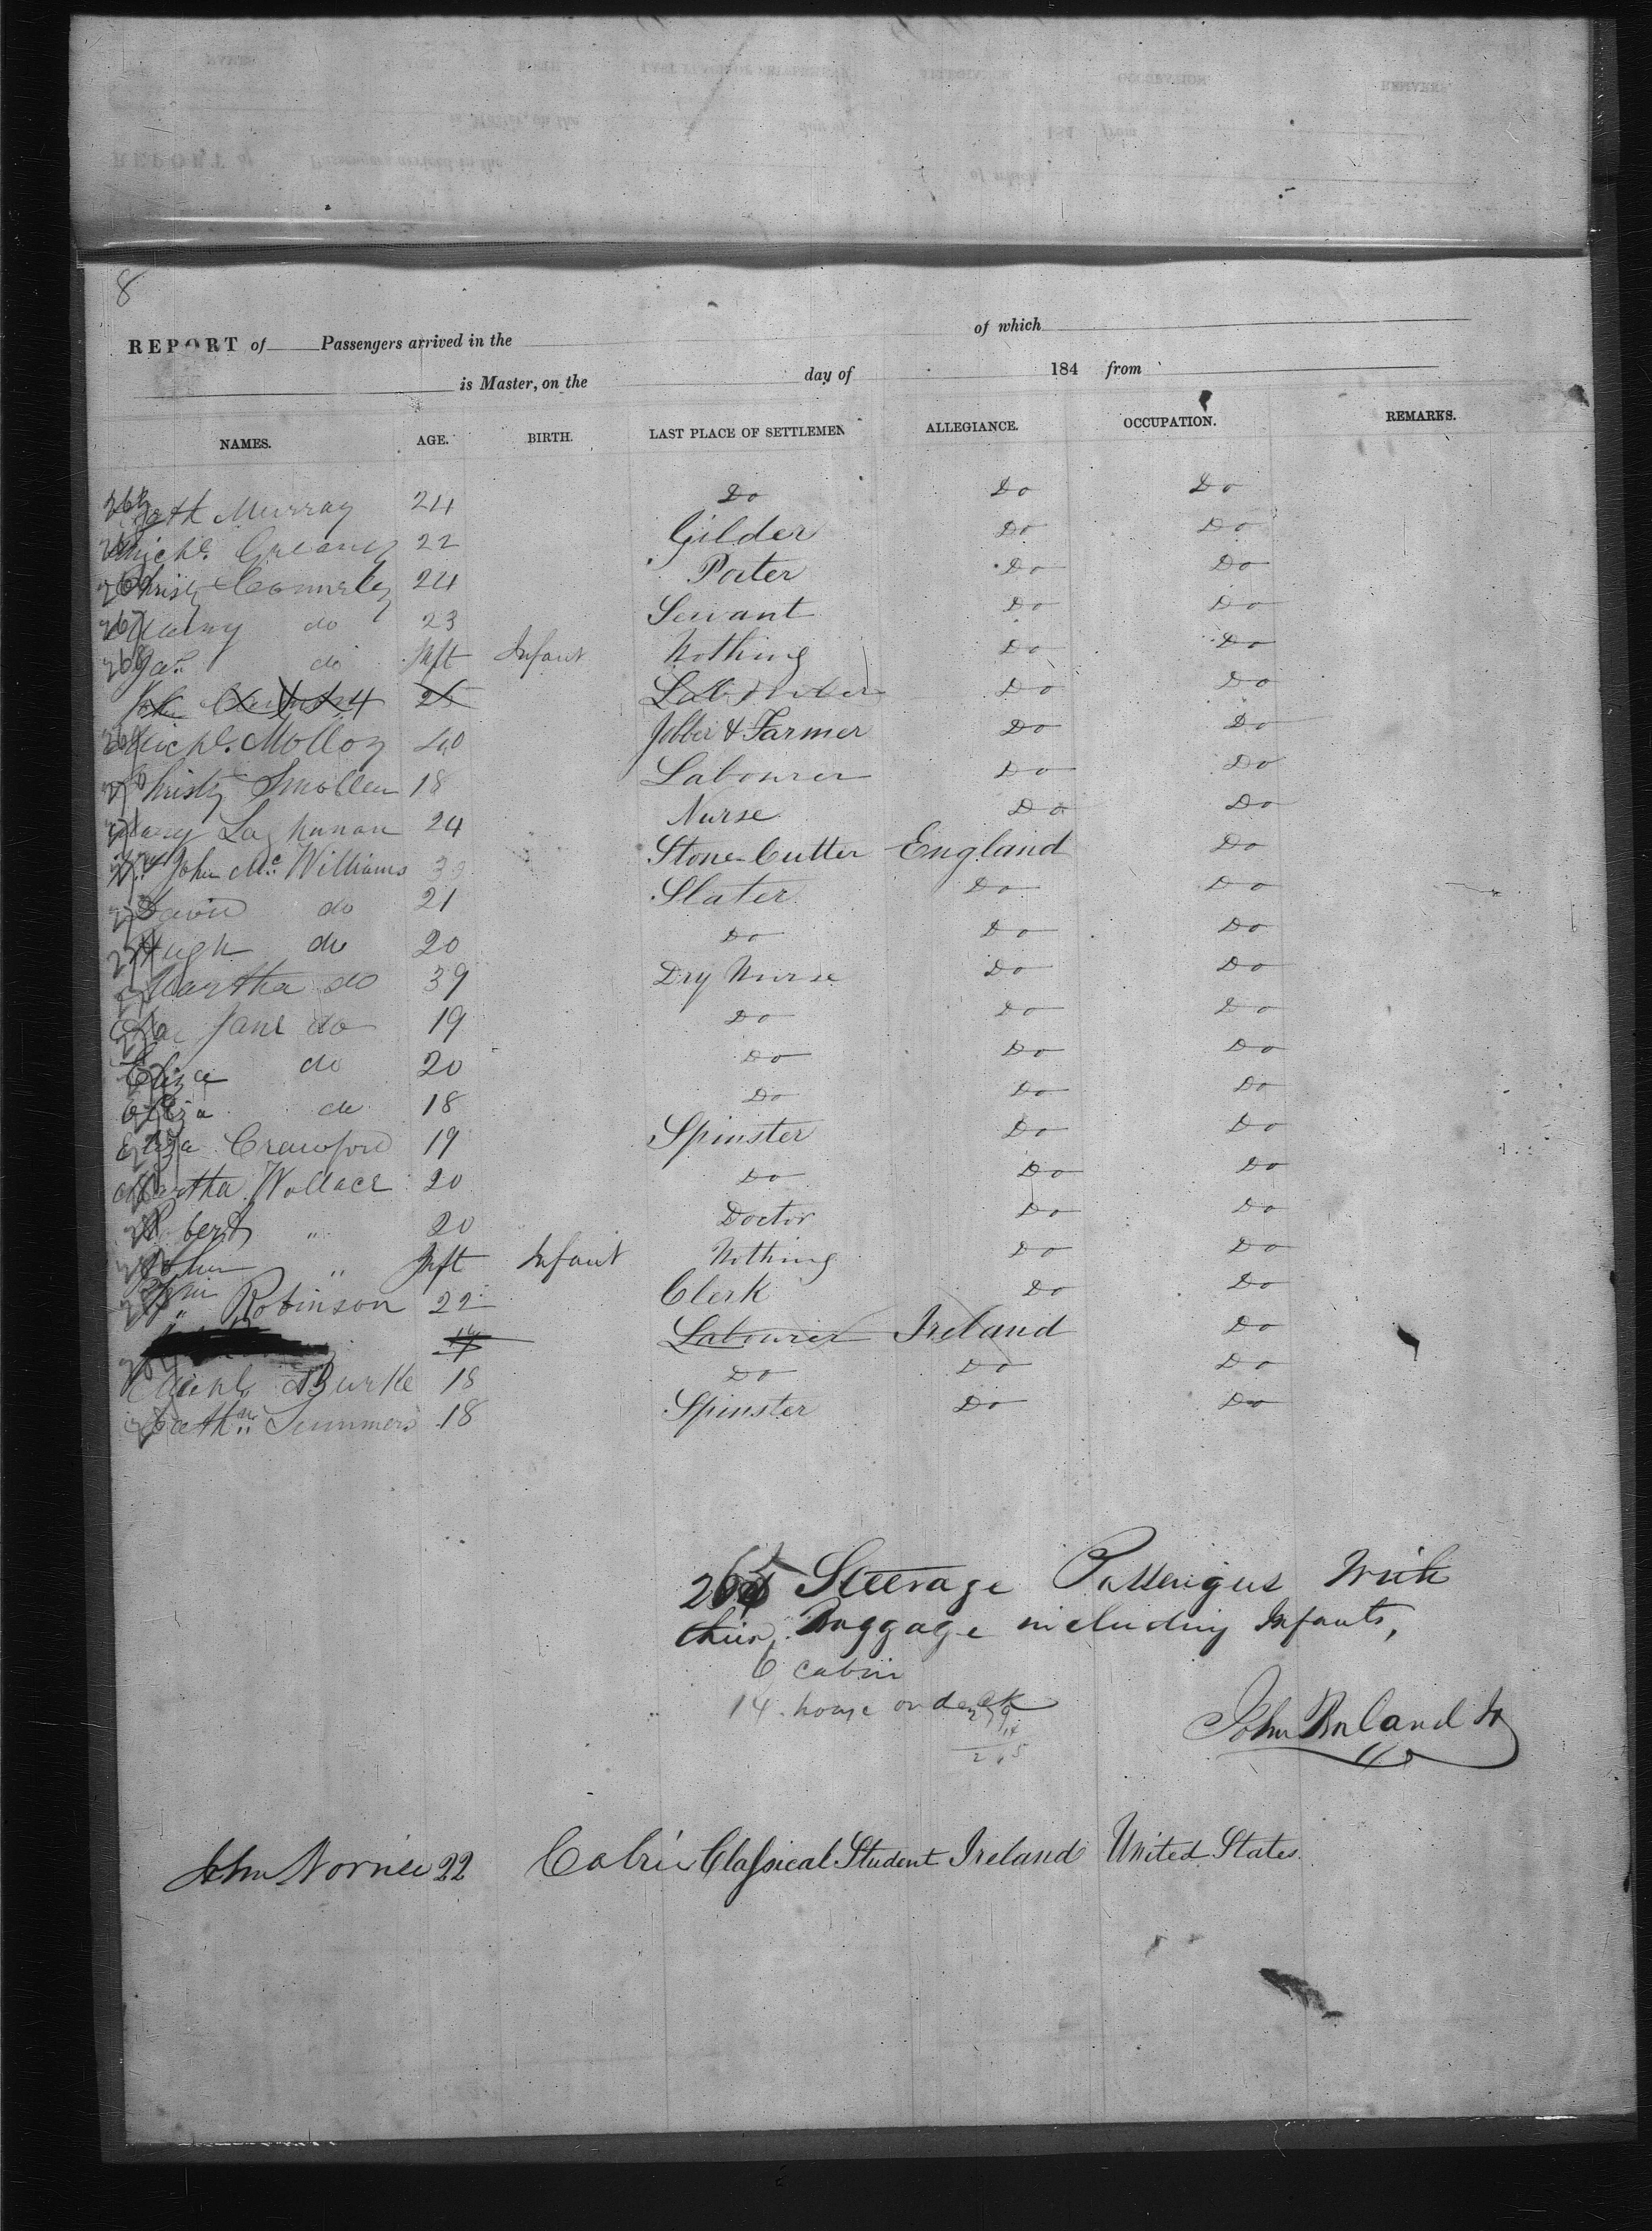 8
REPORT of Passengers arrived in the of which
is Master, on the day of 184 from
NAMES. AGE. BIRTH. LAST PLACE OF SETTLEMEN ALLEGIANCE. OCCUPATION. REMARKS.
Murray 24 Do Do Do
Michl. Greaney 22 Gilder Do Do
Christy Connerley 24 Porter Do Do
Mary do 23 Servant Do Do
Jas. do Inft Infant Nothing Do Do
25 Labourer Do Do
Michl. Molloy 40 Jobber & Farmer Do Do
Christy Smollen 18 Labourer Do Do
Mary Laghunan 24 Nurse Do Do
John Mc. Williams 39 Stone-Cutter England Do
David do 21 Slater Do Do
Hugh do 20 Do Do Do
Martha do 39 Dry Nurse Do Do
Jane do 19 Do Do Do
Eliza do 20 Do Do Do
Eliza do 18 Do Do Do
Eliza Crawford 19 Spinster Do Do
Martha Wallace 20 Do Do Do
Robert " 20 Doctor Do Do
John " Inft Infant Nothing Do Do
Wm " Robinson 22 Clerk Do Do
Labourer Ireland Do
Michl. Burke 18 Do Do Do
Cath. Summers 18 Spinster Do Do
Steerage Passengers With
their Baggage including Infants,
6 cabin
14 house on deck
John
John Norris 22 Cabin Classical Student Ireland United States